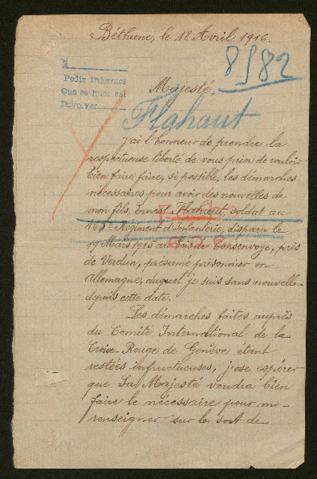 Béthune, le 18 Avril 1916.
8/82
Pedir informes
Que se hace así
Devolver
Majesté,
Flahaut
J'ai l'honneur de prendre la
respectueuse liberté de vous prier de vouloir
bien faire faire, si possible, les démarches
nécessaires pour avoir des nouvelles de
mon fils, Ernest Flahaut, soldat au
Régiment d'Infanterie, disparu le
Mars 1915 au de Consenvoye, près
de Verdun, présumé prisonnier en
Allemagne, duquel je suis sans nouvelle
depuis cette date.
Les démarches faites auprès
du Comité International de la
Croix-Rouge de Genève étant
restées infructueuses, j'ose espérer
que Sa Majesté voudra bien
faire le nécessaire pour me
renseigner sur le sort de